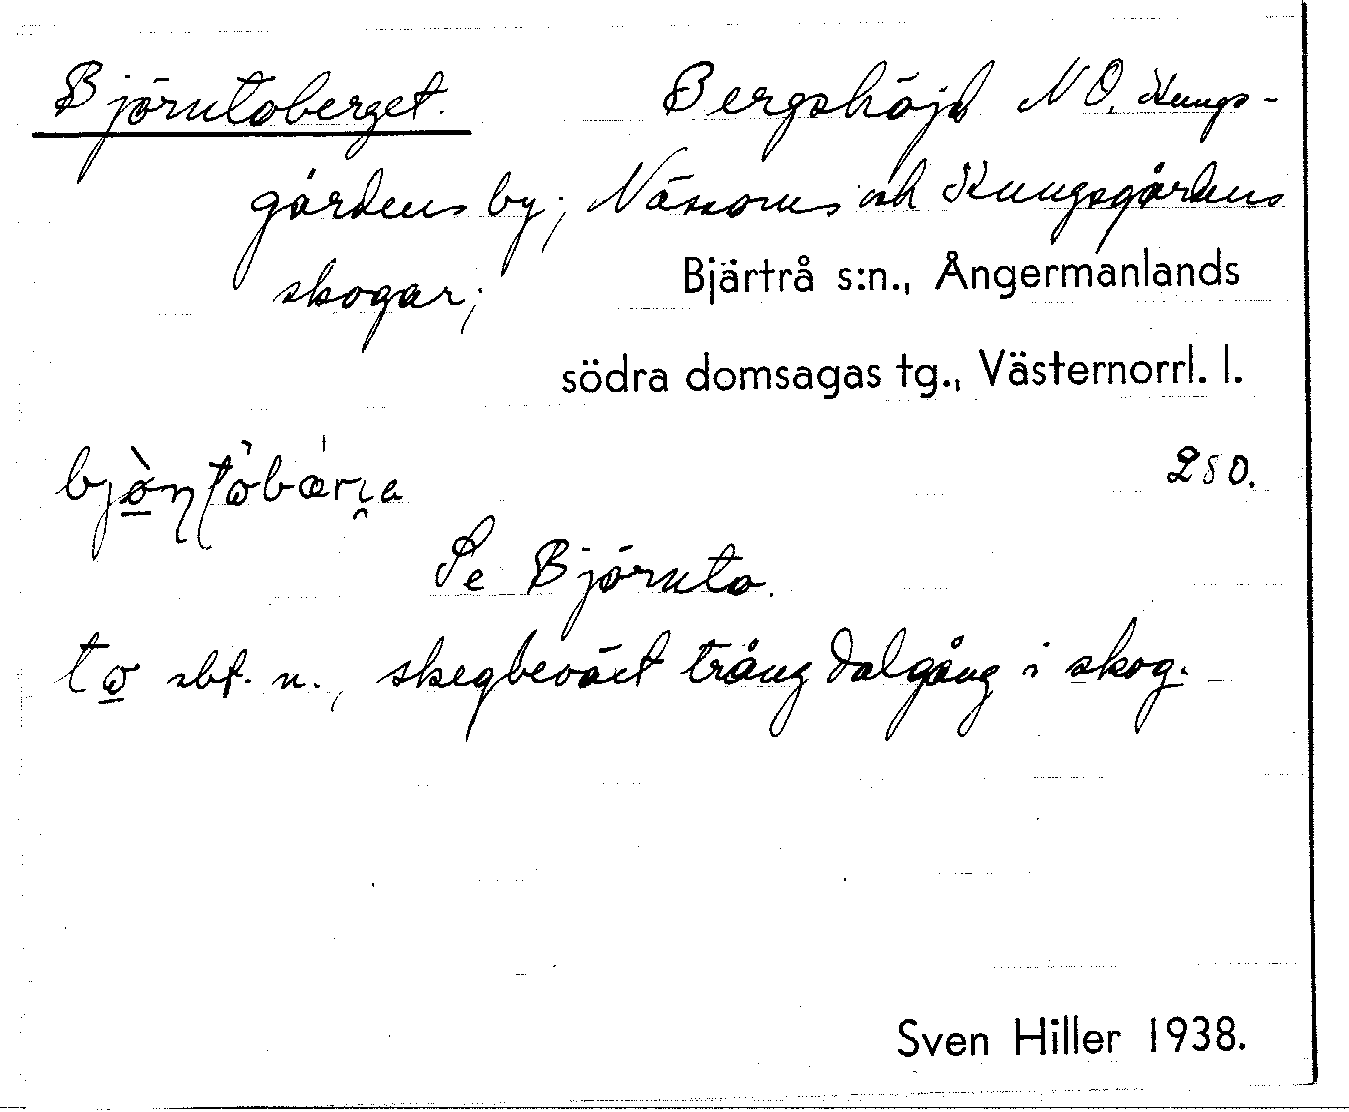 Björntoberget. Bergshöjd NO. Kungs-
gårdens by; Nässoms och Kungsgårdens
skogar; Bjärtrå s:n., Ångermanlands
södra domsagas tg., Västernorrl. l.
250.
Se Björnto.
to sbf. n., skegbeväxt trång dalgång i skog.
Sven Hiller 1938.